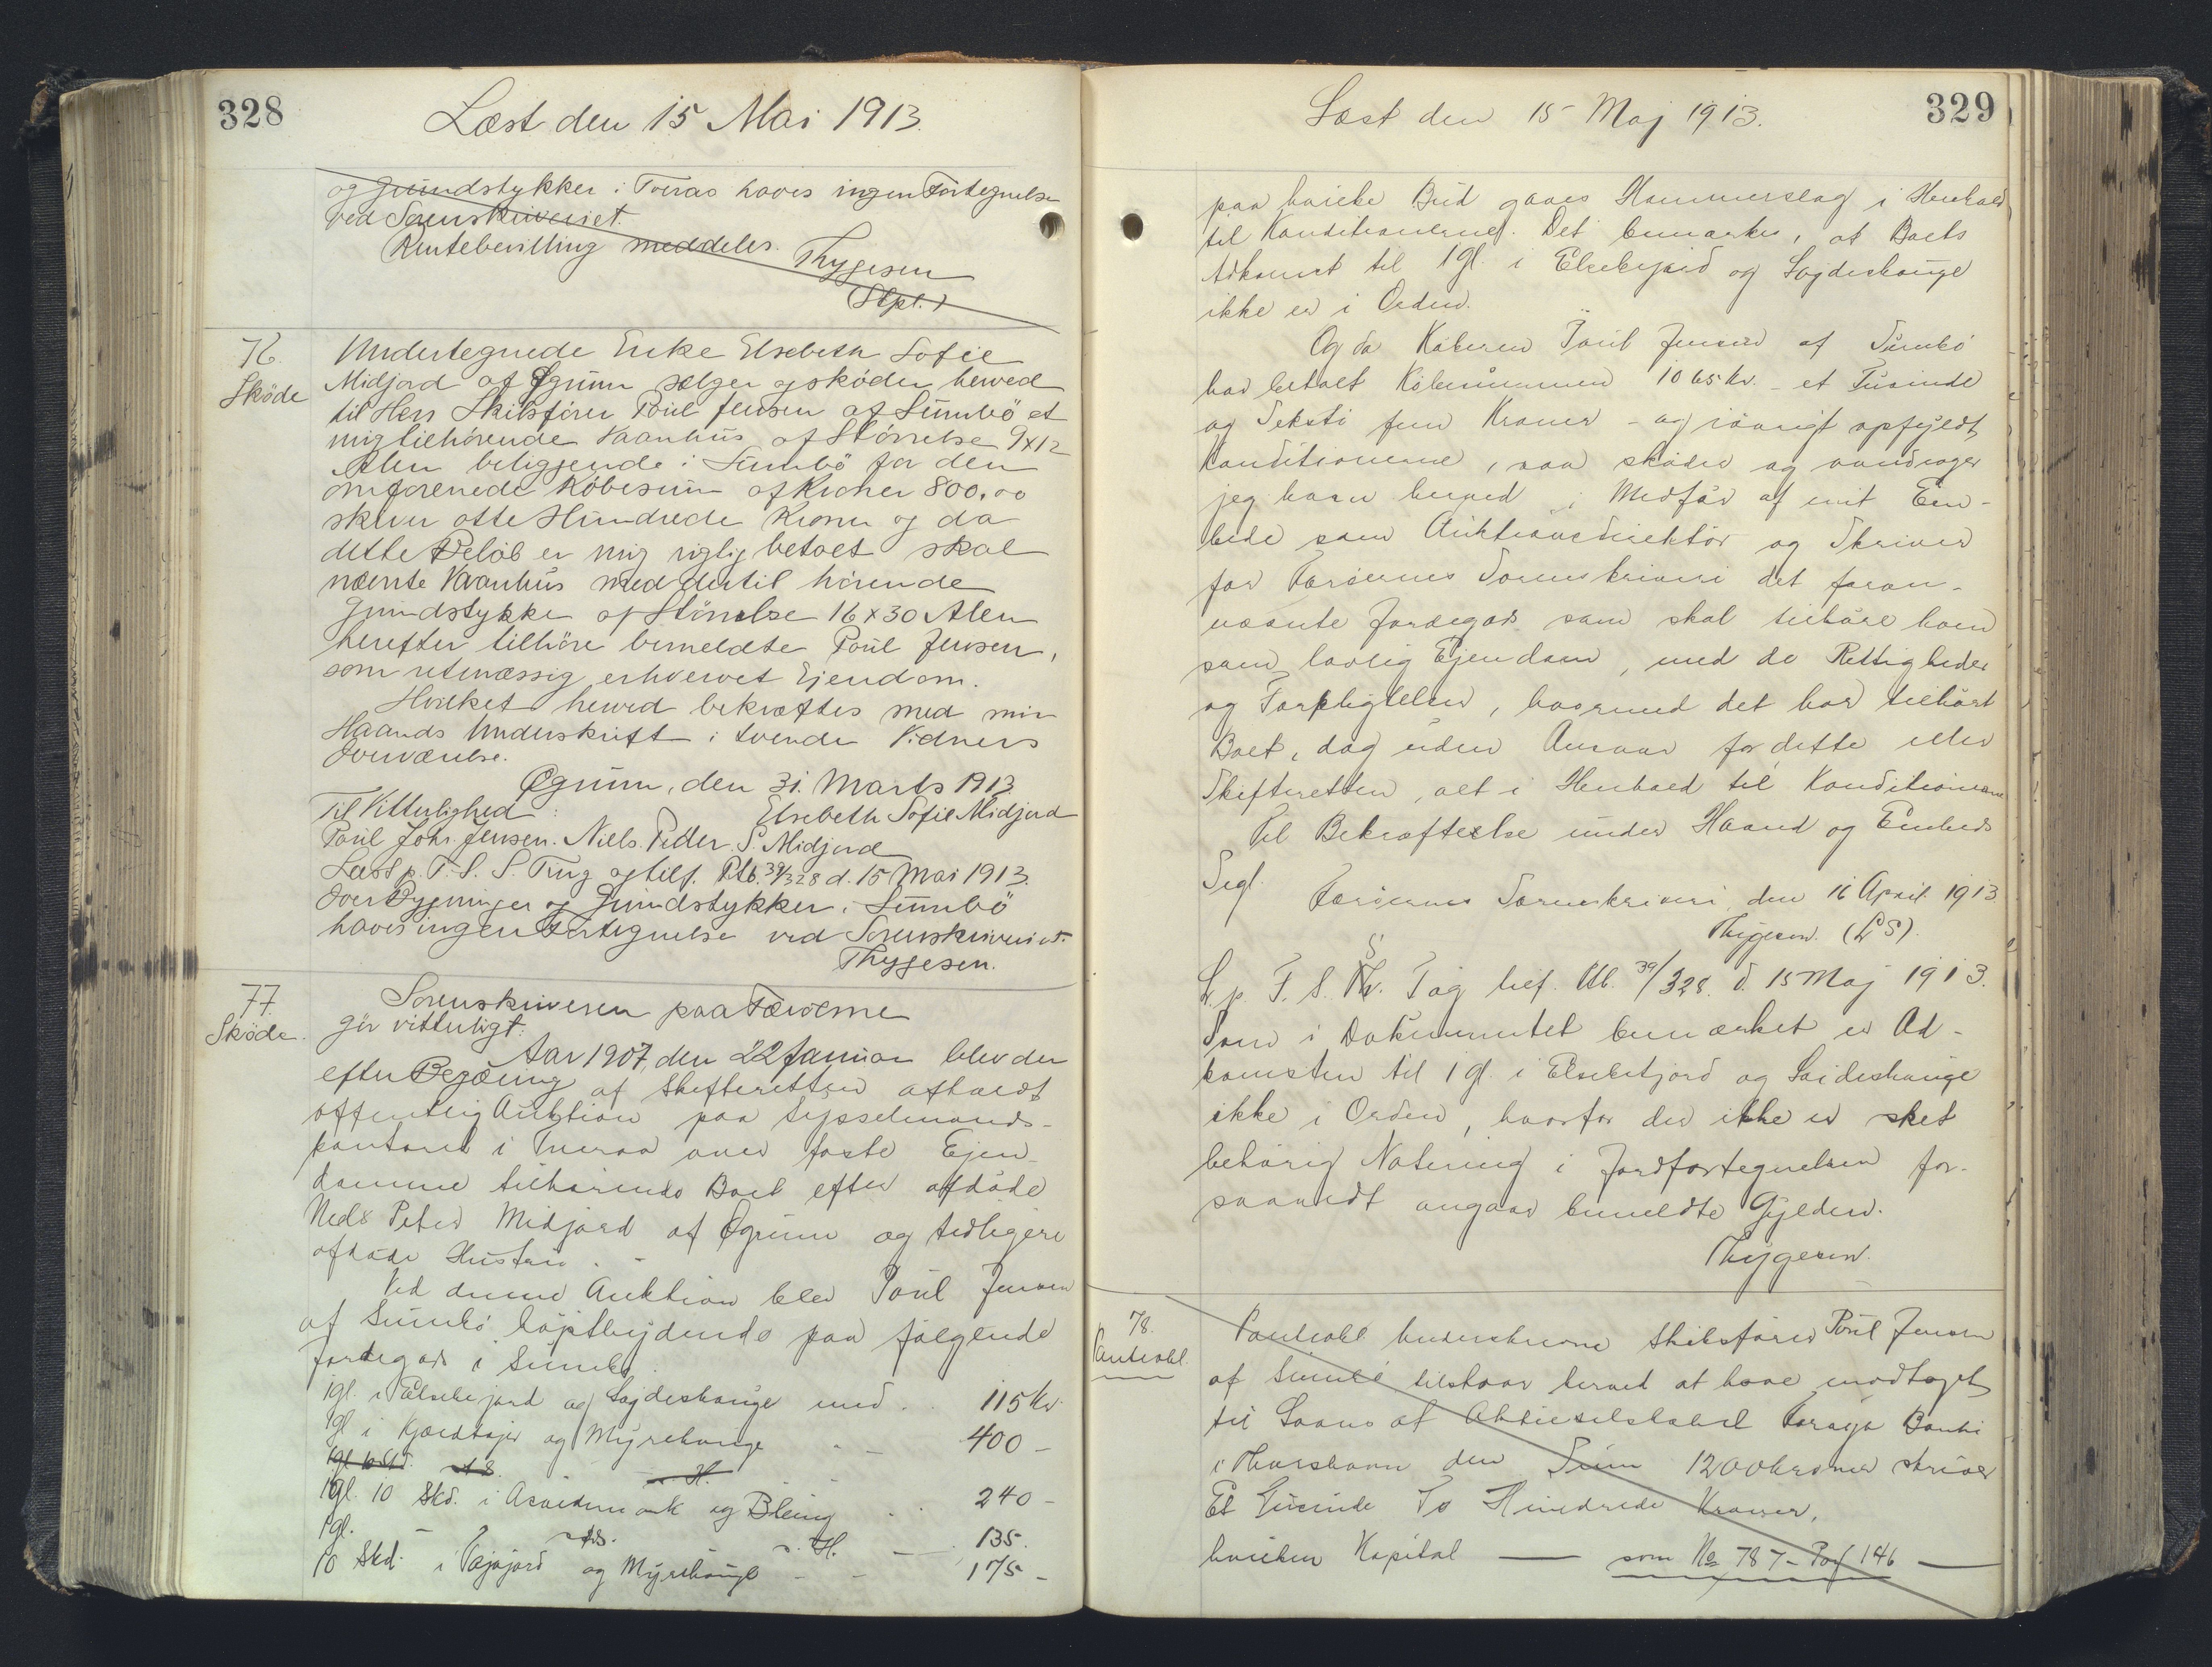 328
Læst den 15 Mai 1913.
og Grundstykker i Tveraa haves ingen Fortegnelse
ved Sorenskriveriet.
Rentebevilling meddeles.
Thygesen
(Stpl.)
76.
Skøde
Undertegnede Enke Elsebeth Sofie
Midjord af Øgrum sælger og skøder herved
til Herr Skibsfører Poul Jensen af Sumbö et
mig tilhørende Vaanhus af Størrelse 9x12
Alen beliggende i Sumbö for den
omforenede Købesum af Kroner 800,00
skriver otte Hundrede Kroner og da
dette Beløb er mig rigtig betalt skal
nævnte Vaanhus med dertil hørende
Grundstykke af Størrelse 16 x 30 Alen
herefter tilhöre bemeldte Poul Jensen,
som retmæssig erhvervet Ejendom.
Hvilket herved bekræftes med min
Haands Underskrift i tvende Vidners
Overværelse.
Øgrum, den 31. Marts 1913.
Til Vitterlighed: Elsebeth Sofie Midjord
Poul Johs Jensen. Niels Peder S. Midjord
Læst p. F. S. S. Ting og tilf. Ptb. 39/328 d. 15 Mai 1913.
Over Bygninger og Grundstykker i Sumbö
haves ingen Fortegnelse ved Sorenskriveriet.
Thygesen.
77.
Skøde.
Sorenskriveren paa Færøerne
gör vitterligt:
Aar 1907, den 22 Januar blev der
efter Begæring af Skifteretten afholdt
offentlig Auktion paa Sysselmands-
kontoret i Tveraa over faste Ejen-
domme tilhørende Boet efter afdøde
Niels Peter Midjord af Øgrum og tidligere
afdøde Hustru.
Ved denne Auktion blev Poul Jensen
af Sumbö højstbydende paa følgende
Jordegods i Sumbö.
1 gl. i Elsebejord og Sojdeshauge med . . 115 Kr.
1 gl i Kjærdtajer og Myrehauge - - 400 -
1 gl. 10 Skd. i Asvidemark og Bleing . . 240 -
1 gl. - - - 135.
10 Skd. i Pajajord og Myrehauge - - 175 -
329
Læst den 15 Maj 1913.
paa hvilke Bud gaves Hammerslag i Henhold
til Konditionerne. Det bemærkes, at Boets
Adkomst til 1 gl. i Elsebejord og Sojdeshauge
ikke er i Orden.
Og da Köberen Poul Jensen af Sumbö
har betalt Købesummen 1065 Kr. - et Tusinde
og Seksti fem Kroner - og iøvrigt opfyldt
Konditionerne, saa skøder og overdrager
jeg ham herved i Medfør af mit Em-
bede som Auktionsdirektör og Skriver
for Færøernes Sorenskriveri det foran-
nævnte Jordegods som skal tilhøre ham
som lovlig Ejendom, med de Rettigheder
og Forpligtelser, hvormed det har tilhørt
Boet, dog uden Ansvar for dette eller
Skifteretten, alt i Henhold til Konditionerne
Til Bekræftelse under Haand og Embeds
Segl.
Færøernes Sorenskriveri, den 16 April 1913
Thygesen. (L S).
L. p. F. S. S. Ting tilf. Ptb. 39/328. d. 15 Maj 1913.
Som i Dokumentet bemærket er Ad-
komsten til 1 gl. i Elsebejord og Soideshauge
ikke i Orden, hvorfor der ikke er sket
behørig Notering i Jordfortegnelsen for-
saavidt angaar bemeldte Gylden.
Thygesen.
78.
Panteobl.
Panteobl Underskrevne Skibsfører Poul Jensen
af Sumbö tilstaar herved at have modtaget
til Laans af Aktieselskabet Føroya Banki
i Thorshavn den Sum 1200 kroner skriver
Et Tusinde To Hundrede Kroner,
hvilken Kapital — som No 787 - Pag 146 —